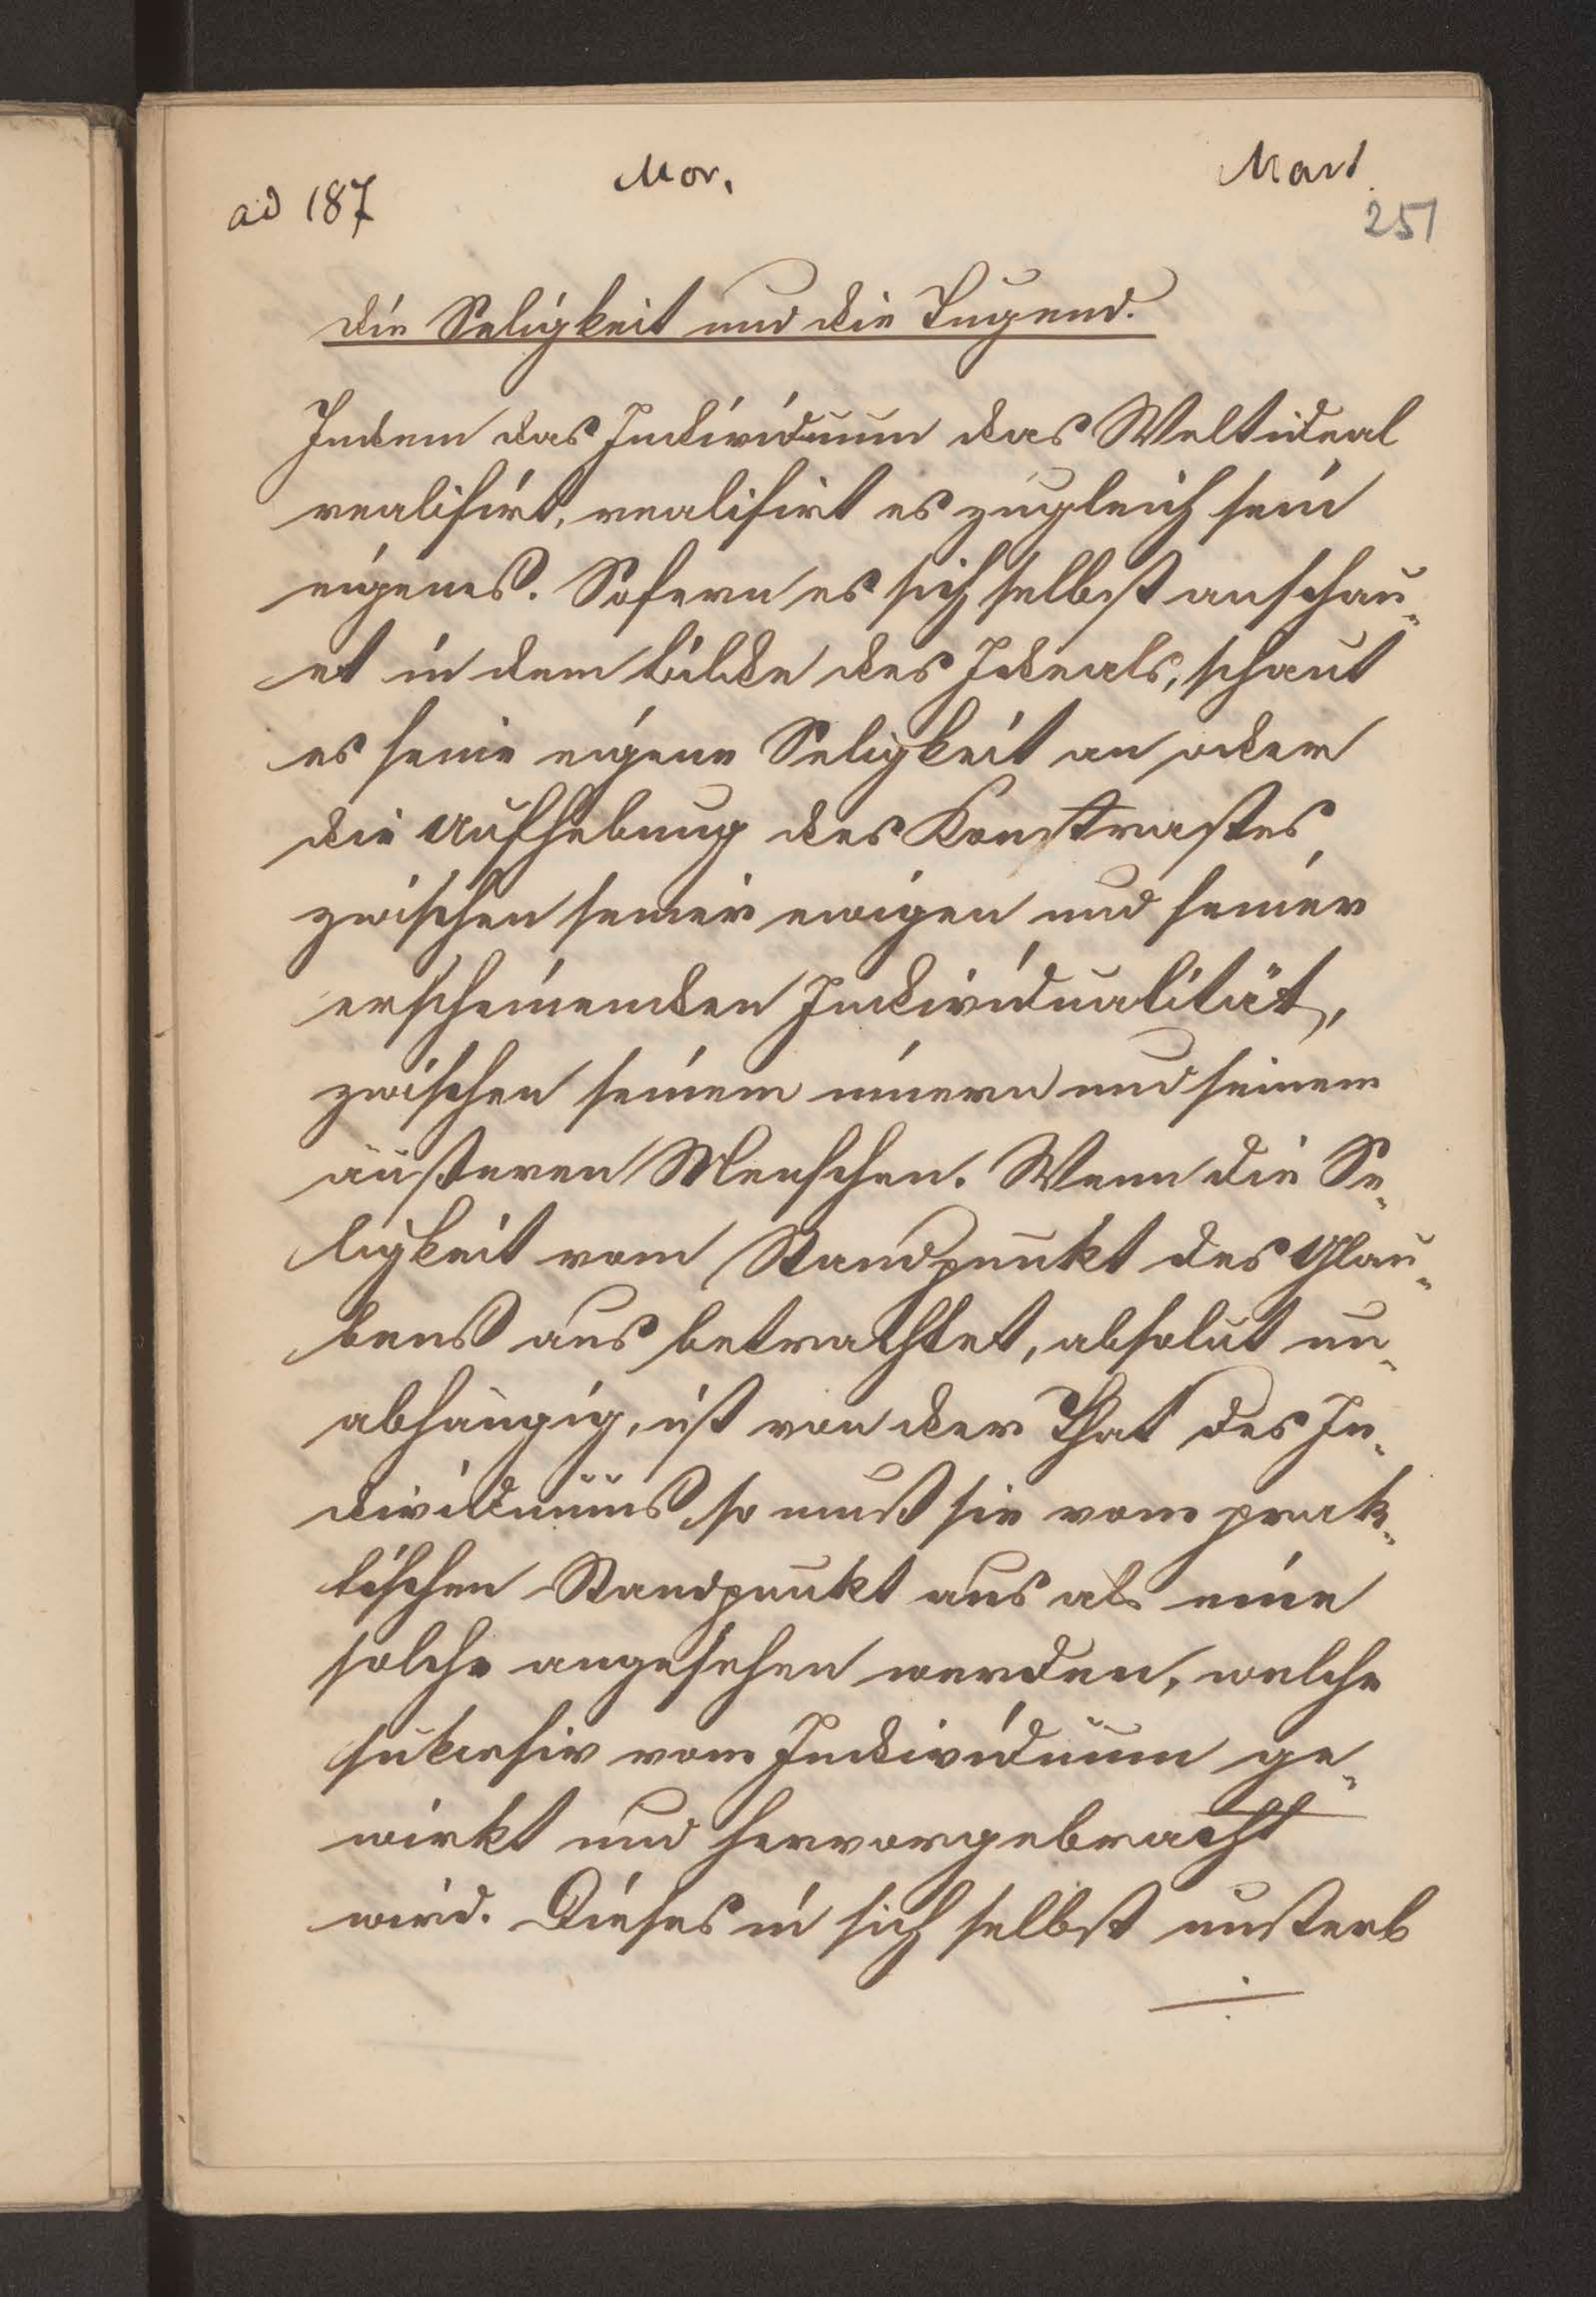 ad 187
Mor.
Mart.
251
die Seligkeit und die Tugend.
Indem das Individuum das Weltideal
realisirt, realisirt es zugleich sein
eigenes. Sofern es sich selbst anschau-
et in dem Bilde des Ideals, schaut
es seine eigene Seligkeit an oder
die Aufhebung des Konstrastes
zwischen seiner ewigen und seiner
erscheinenden Individualität,
zwischen seinem innern und seinem
äußeren Menschen. Wenn die Se-
ligkeit vom Standpunkt des Glau-
bens aus betrachtet, absolut un-
abhängig, ist von der That des In-
dividuums so muß sie vom prak-
tischen Standpunkt aus als eine
solche angesehen werden, welche
sukcesiv vom Individuum ge-
wirkt und hervorgebracht
wird. Dieses in sich selbst unsterb